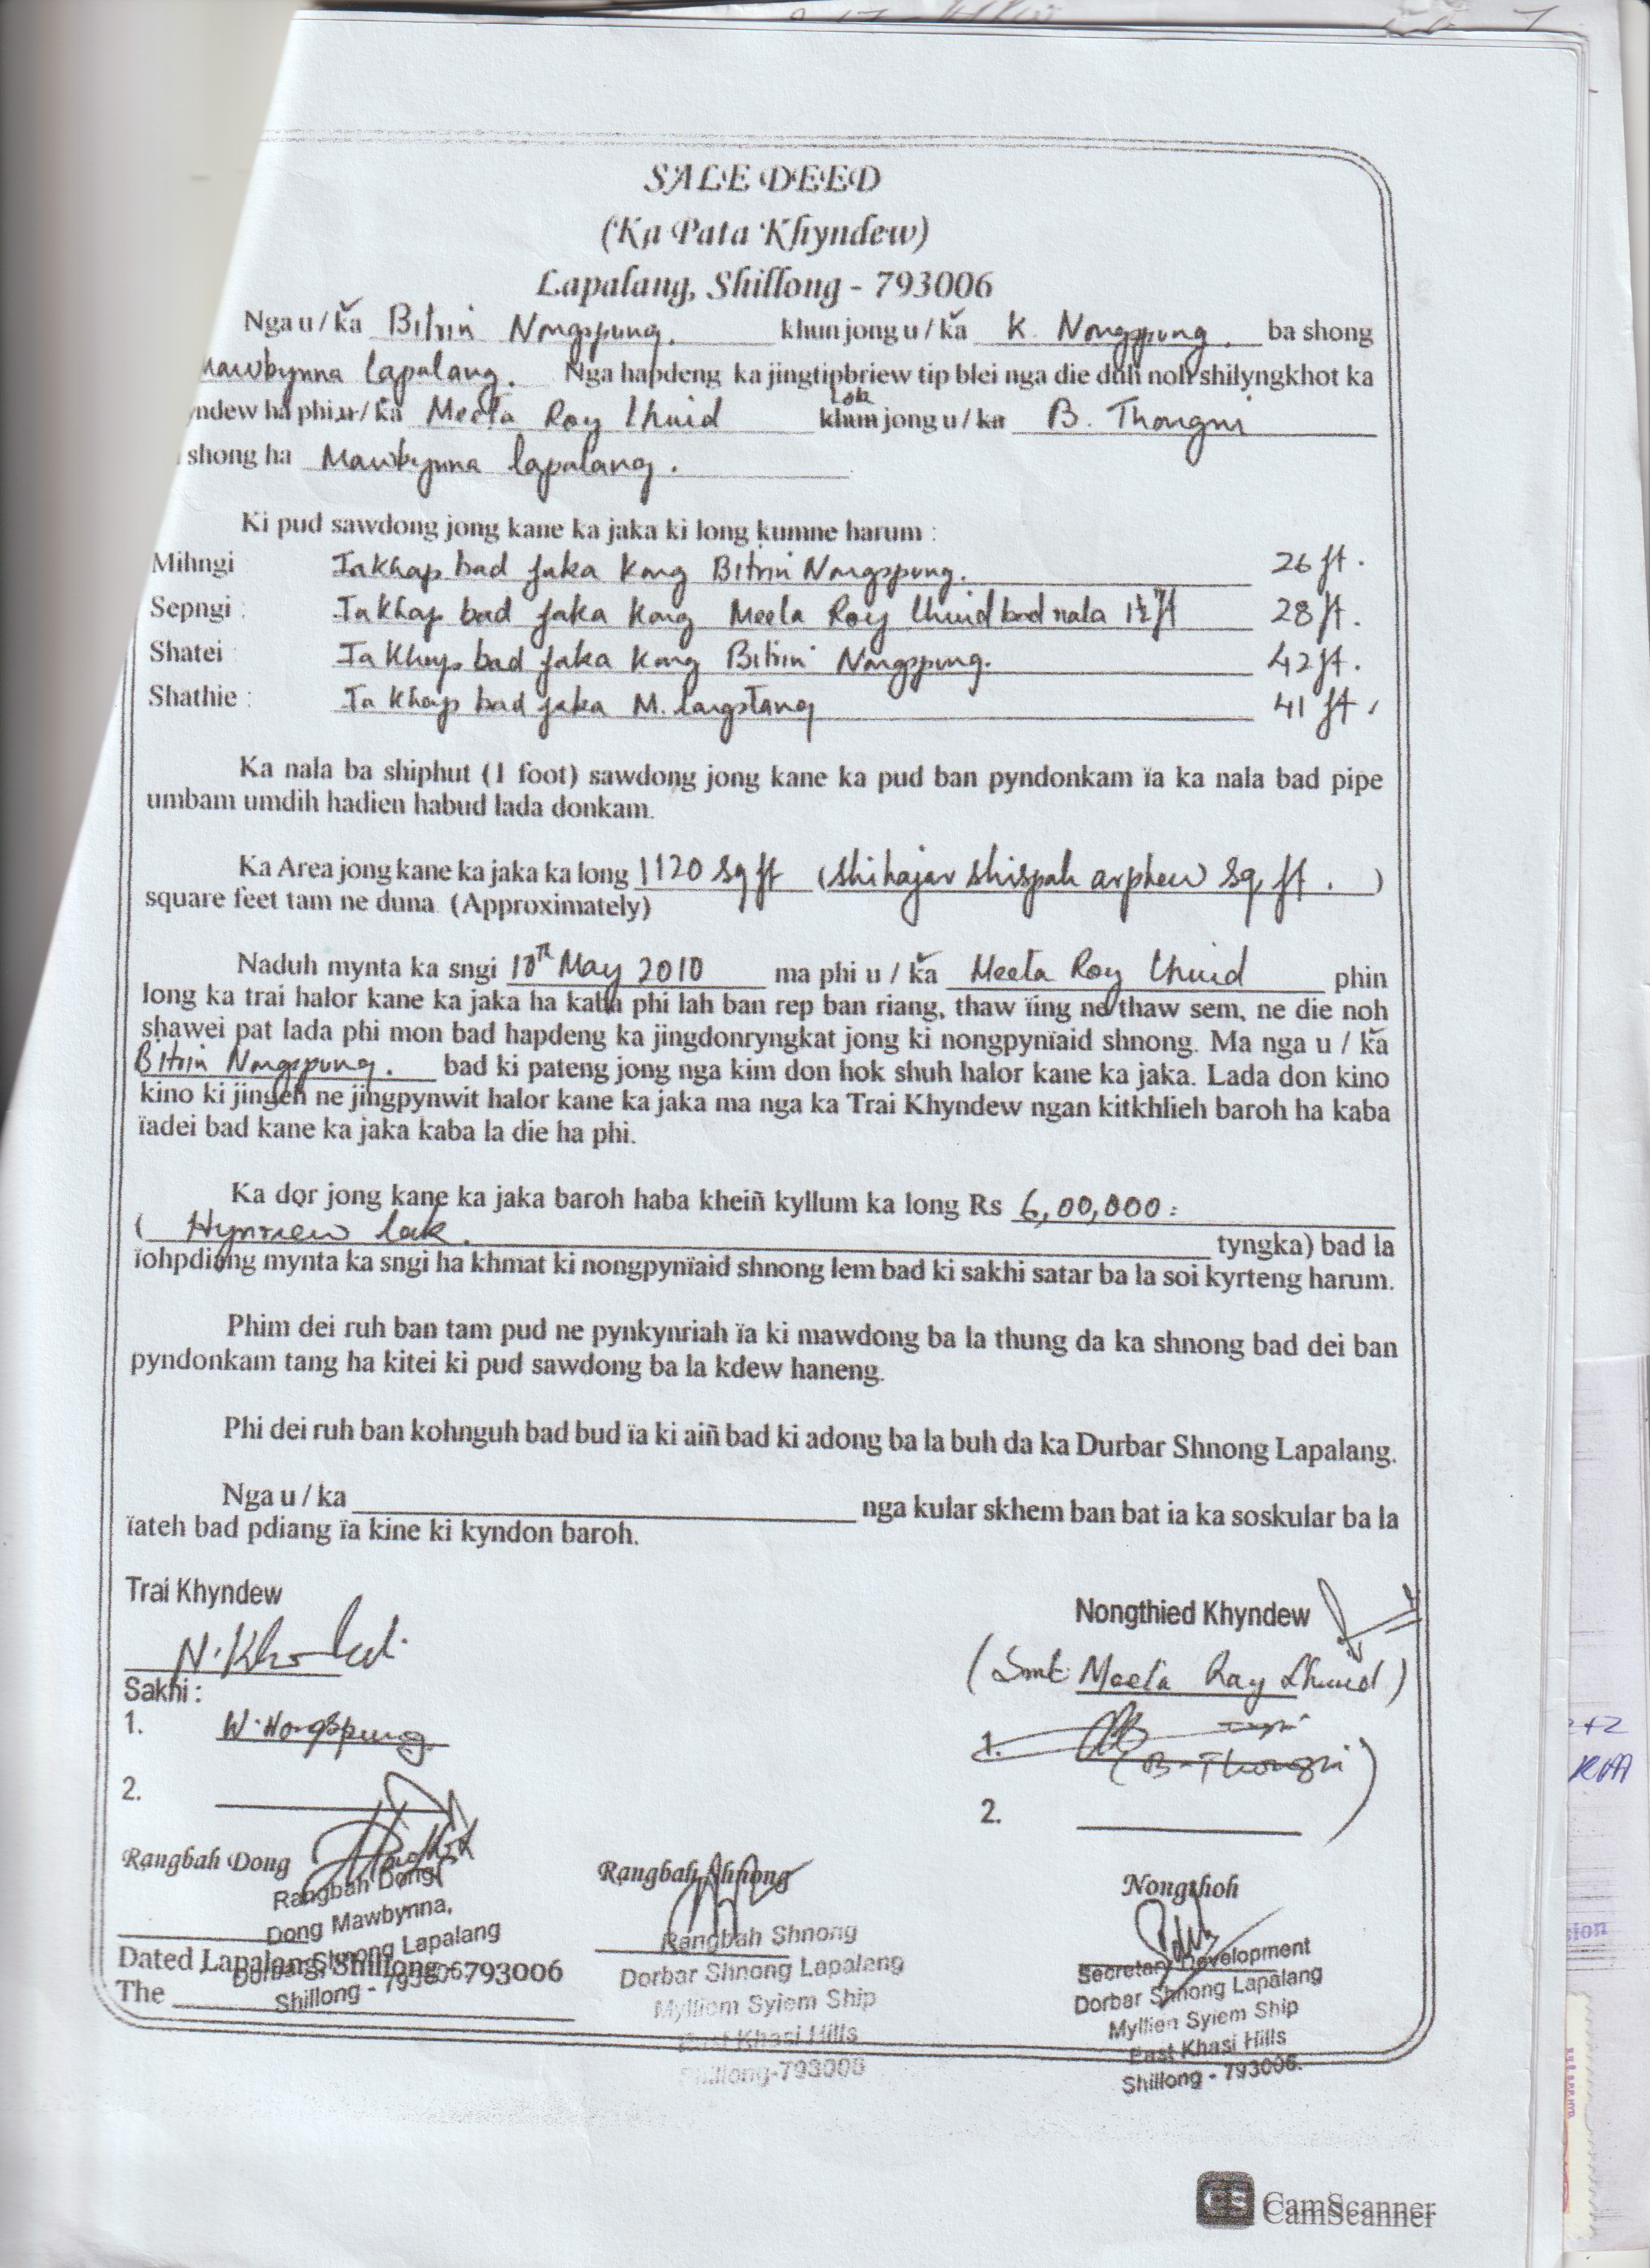 SALE DEED
(Ka Pata Khyndew)
Lapalang, Shillong - 793006
Nga u / ka Bitrin Nongspung. khun jong u / ka K. Nongspung. ba shong
Mawbynna Lapalang. Nga hapdeng ka jingtipbriew tip blei nga die duh noh shilyngkhot ka
yndew ha phi u / ka Meeta Roy Lhuid Lok khun jong u / ka B. Thongni
shong ha Mawbynna Lapalang.
Ki pud sawdong jong kane ka jaka ki long kumne harum :
Mihngi Iakhap bad jaka Kong Bitrin Nongspung. 26 ft.
Sepngi : Iakhap bad jaka Kong Meeta Roy Lhuid bad nala 1½ ft 28 ft.
Shatei Iakhap bad jaka Kong Bitrin Nongspung. 42 ft.
Shathie : Iakhap bad jaka M. Langstang 41 ft.
Ka nala ba shiphut (1 foot) sawdong jong kane ka pud ban pyndonkam ïa ka nala bad pipe
umbam umdih hadien habud lada donkam.
Ka Area jong kane ka jaka ka long 1120 sq ft (shihajar shispah arphew sq. ft.)
square feet tam ne duna (Approximately)
Naduh mynta ka sngi 10th May 2010 ma phi u / ka Meeta Roy Lhuid phin
long ka trai halor kane ka jaka ha kaba phi lah ban rep ban riang, thaw ïing ne thaw sem, ne die noh
shawei pat lada phi mon bad hapdeng ka jingdonryngkat jong ki nongpynïaid shnong. Ma nga u / ka
Bitrin Nongspung. bad ki pateng jong nga kim don hok shuh halor kane ka jaka. Lada don kino
kino ki jingeh ne jingpynwit halor kane ka jaka ma nga ka Trai Khyndew ngan kitkhlieh baroh ha kaba
ïadei bad kane ka jaka kaba la die ha phi.
Ka dor jong kane ka jaka baroh haba kheiñ kyllum ka long Rs 6,00,000:
( Hynriew lak. tyngka) bad la
ïohpdiang mynta ka sngi ha khmat ki nongpynïaid shnong lem bad ki sakhi satar ba la soi kyrteng harum.
Phim dei ruh ban tam pud ne pynkynriah ïa ki mawdong ba la thung da ka shnong bad dei ban
pyndonkam tang ha kitei ki pud sawdong ba la kdew haneng.
Phi dei ruh ban kohnguh bad bud ïa ki aiñ bad ki adong ba la buh da ka Durbar Shnong Lapalang.
Nga u / ka nga kular skhem ban bat ia ka soskular ba la
ïateh bad pdiang ïa kine ki kyndon baroh.
Trai Khyndew
Nongthied Khyndew
(Smt. Meeta Ray Lhuid)
Sakhi :
1. W. Nongspung
1. (B. Thongni)
2.
2.
Rangbah Dong
Rangbah Dong
Dong Mawbynna,
Dorbar Shnong Lapalang
Shillong - 793006
Rangbah Shnong
Rangbah Shnong
Dorbar Shnong Lapalang
Mylliem Syiem Ship
East Khasi Hills
Shillong-793006
Nongthoh
Secretary Development
Dorbar Shnong Lapalang
Myllien Syiem Ship
East Khasi Hills
Shillong - 793006.
Dated Lapalang, Shillong - 793006
The
CS CamScanner
CamScanner